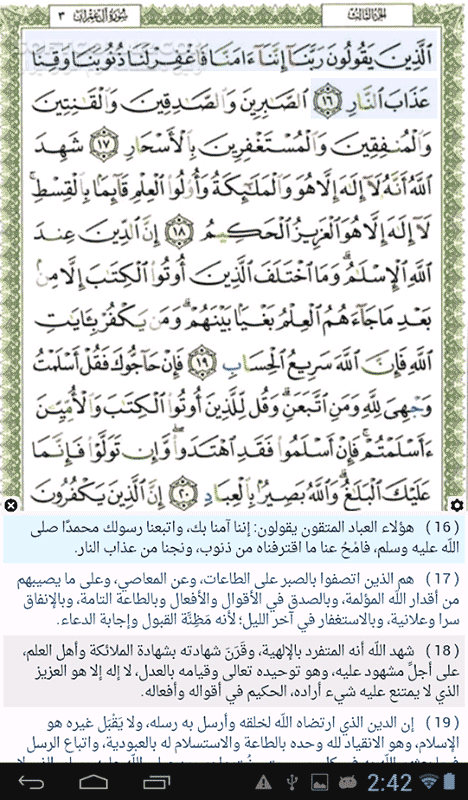 الجزء الثالث
سورة آل عمران ٣
الَّذِينَ يَقُولُونَ رَبَّنَا إِنَّنَا ءَامَنَّا فَاغْفِرْ لَنَا ذُنُوبَنَا وَقِنَا
عَذَابَ النَّارِ ١٦ الصَّابِرِينَ وَالصَّادِقِينَ وَالْقَانِتِينَ
وَالْمُنفِقِينَ وَالْمُسْتَغْفِرِينَ بِالْأَسْحَارِ ١٧ شَهِدَ
اللَّهُ أَنَّهُ لَا إِلَٰهَ إِلَّا هُوَ وَالْمَلَائِكَةُ وَأُولُوا الْعِلْمِ قَائِمًا بِالْقِسْطِ
لَا إِلَٰهَ إِلَّا هُوَ الْعَزِيزُ الْحَكِيمُ ١٨ إِنَّ الدِّينَ عِندَ
اللَّهِ الْإِسْلَامُ وَمَا اخْتَلَفَ الَّذِينَ أُوتُوا الْكِتَابَ إِلَّا مِن
بَعْدِ مَا جَاءَهُمُ الْعِلْمُ بَغْيًا بَيْنَهُمْ وَمَن يَكْفُرْ بِئَايَاتِ
اللَّهِ فَإِنَّ اللَّهَ سَرِيعُ الْحِسَابِ ١٩ فَإِنْ حَاجُّوكَ فَقُلْ أَسْلَمْتُ
وَجْهِيَ لِلَّهِ وَمَنِ اتَّبَعَنِ وَقُل لِّلَّذِينَ أُوتُوا الْكِتَابَ وَالْأُمِّيِّينَ
ءَأَسْلَمْتُمْ فَإِنْ أَسْلَمُوا فَقَدِ اهْتَدَوا وَّإِن تَوَلَّوْا فَإِنَّمَا
عَلَيْكَ الْبَلَاغُ وَاللَّهُ بَصِيرٌ بِالْعِبَادِ ٢٠ إِنَّ الَّذِينَ يَكْفُرُونَ
(16) هؤلاء العباد المتقون يقولون: إننا آمنا بك، واتبعنا رسولك محمدًا صلى
الله عليه وسلم، فامْحُ عنا ما اقترفناه من ذنوب، ونجنا من عذاب النار.
(17) هم الذين اتصفوا بالصبر على الطاعات، وعن المعاصي، وعلى ما يصيبهم
من أقدار الله المؤلمة، وبالصدق في الأقوال والأفعال وبالطاعة التامة، وبالإنفاق
سرا وعلانية، وبالاستغفار في آخر الليل؛ لأنه مَظِنَّة القبول وإجابة الدعاء.
(18) شهد الله أنه المتفرد بالإلهية، وقَرَنَ شهادته بشهادة الملائكة وأهل العلم،
على أجلِّ مشهود عليه، وهو توحيده تعالى وقيامه بالعدل، لا إله إلا هو العزيز
الذي لا يمتنع عليه شيء أراده، الحكيم في أقواله وأفعاله.
(19) إن الدين الذي ارتضاه الله لخلقه وأرسل به رسله، ولا يَقْبَل غيره هو
الإسلام، وهو الانقياد لله وحده بالطاعة والاستسلام له بالعبودية، واتباع الرسل
2:42